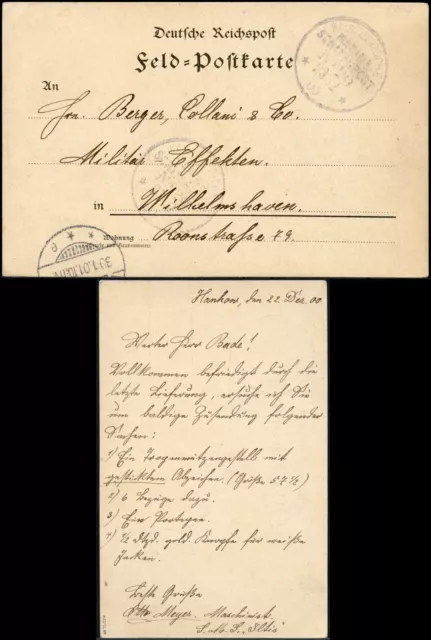 Deutsche Reichspost
Feld-Postkarte
An
Hrn. Berger, Collani & Co.
Militär Effekten.
in Wilhelmshaven.
Wohnung
Roonstrasse 79.
Hankow, den 22. Dez. 00.
Werter Herr Bade!
Vollkommen befriedigt durch die
letzte Lieferung, ersuche ich Sie
um baldige Zusendung folgender
Sachen:
1) Ein
gesticktem Abzeichen. (Größe 57½)
2) 6 Bezüge dazu.
3) Ein Portepee.
4) ½ Dtzd. gold. Knöpfe für weiße
Jacken.
Beste Grüße
Otto Meyer. Maschinist.
S.M.S. "Iltis"